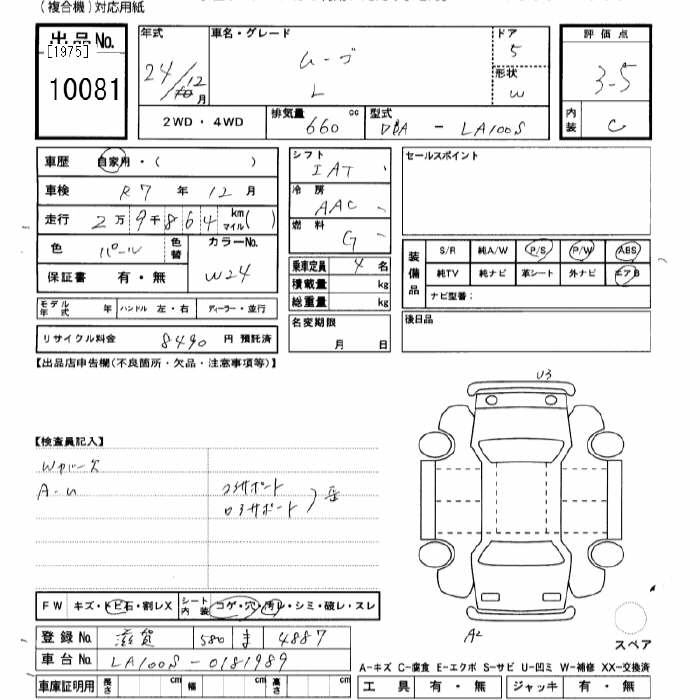 (複合機)対応用紙
出品No.
[1975]
10081
年式 車名・グレード ドア
24/12月 ムーヴ 5
L 形状 W
2WD・4WD 排気量 660 cc 型式 DBA - LA100S
評価点
3-5
内装 C
車歴 自家用・( )
車検 R7年12月
走行 2万9千864 km マイル( )
色 パール 色替 カラーNo. W24
保証書 有・無
モデル年式 年 ハンドル 左・右 ディーラー・並行
リサイクル料金 8490 円 預託済
シフト IAT
冷房 AAC
燃料 G
乗車定員 4名
積載量 kg
総重量 kg
名変期限
月 日
セールスポイント
装備品 S/R 純A/W P/S P/W ABS
純TV 純ナビ 革シート 外ナビ エアB
ナビ型番:
後日品
【出品店申告欄(不良箇所・欠品・注意事項等)】
【検査員記入】
A-U
コアサポート
ロアサポート
U3
A2
スペア
FW キズ・トビ石・割レX シート内装 コゲ・穴・汚レ・シミ・破レ・スレ
登録No. 滋賀 580 ま 4887
車台No. LA100S-0181989
車庫証明用 長さ cm 幅 cm 高さ cm
A-キズ C-腐食 E-エクボ S-サビ U-凹ミ W-補修 XX-交換済
工具 有・無 ジャッキ 有・無